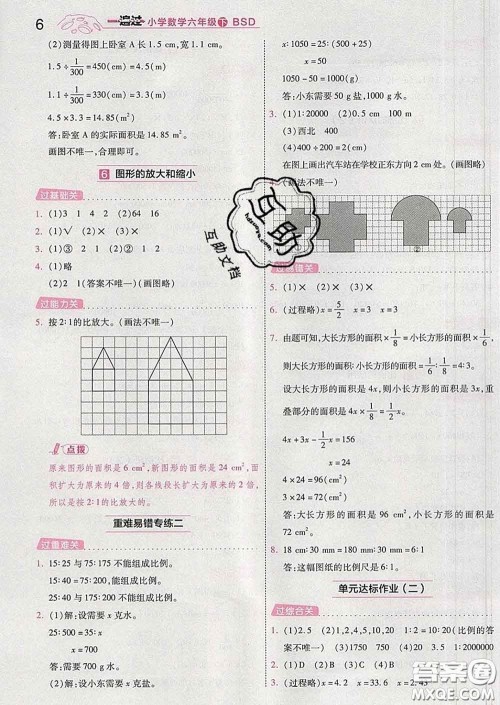 6 一遍过 小学数学六年级 下 BSD
(2)测量得图上卧室 A 长 1.5 cm,宽 1.1 cm。
1.5÷1/300=450(cm) =4.5(m)
1.1÷1/300=330(cm) =3.3(m)
4.5×3.3=14.85(m²)
答:卧室 A 的实际面积是 14.85 m²。
画图不唯一,合理即可。
6 图形的放大和缩小
过基础关
1. (1)3 1 4 (2)64 16
2. (1)√ (2)× (3)×
3. (1)③ (2)① ②
4. (1)(略)
(2)2 1(答案不唯一)(画图略)
过能力关
5. 按2∶1的比放大。(画法不唯一)
点拨
原来图形的面积是 6 cm²,新图形的面积是 24 cm²,面
积扩大为原来的 4 倍,则各线段长扩大为原来的 2 倍,
所以是按2∶1的比放大的。
重难易错专练二
过重难关
1. 15∶25 与 75∶175 不能组成比例。
15∶40 = 75∶200,能组成比例。
25∶40 与 75∶175 不能组成比例。
2. (1)解:设需要 x 克水。
25∶500 = 35∶x
x = 700
答:需要 700 克水。
(2)解:设小东需要 x 克盐。
x∶1050 = 25∶(500 + 25)
x = 50
1050 - 50 = 1000(g)
答:小东需要 50 g 盐,1000 g 水。
3. (1)(1)1∶20000 (2)0.5 100 m
(3)西北 400
(4)400÷200 = 2(cm)
在图上画出汽车站在学校正东方向 2 cm 处。(画图略)
(画法不唯一)
①
②
过易错关
5. (1)× (2)× (3)×
6. (过程略) x=5/2 x=3 x=3
7. 由题可知,大长方形的面积×1/8=小长方形的面积×1/6,
则大长方形的面积∶小长方形的面积=1/6∶1/8=4∶3。
设大长方形的面积是 4x,则小长方形的面积是 3x,重
叠部分的面积是 4x×1/8=1/2x。
4x+3x-1/2x=156
x=24
4×24=96(cm²)
3×24=72(cm²)
答:大长方形的面积是 96 cm²,小长方形的面积是
72 cm²。
8. 18 cm∶30 mm=180 mm∶30 mm=6∶1
答:这幅图纸的比例尺是 6∶1。
单元达标作业(二)
过综合关
1. (1)2.5 (2)1,2,4,20,1∶2=4∶8(比例的答案
不唯一) (3)1750 750 (4)20 (5)1∶2000000
2. (1)C (2)D (3)B (4)A
3. (过程略) x=4.2 x=33.6 x=2
互助
互助文档
答案圈
MXQE.COM